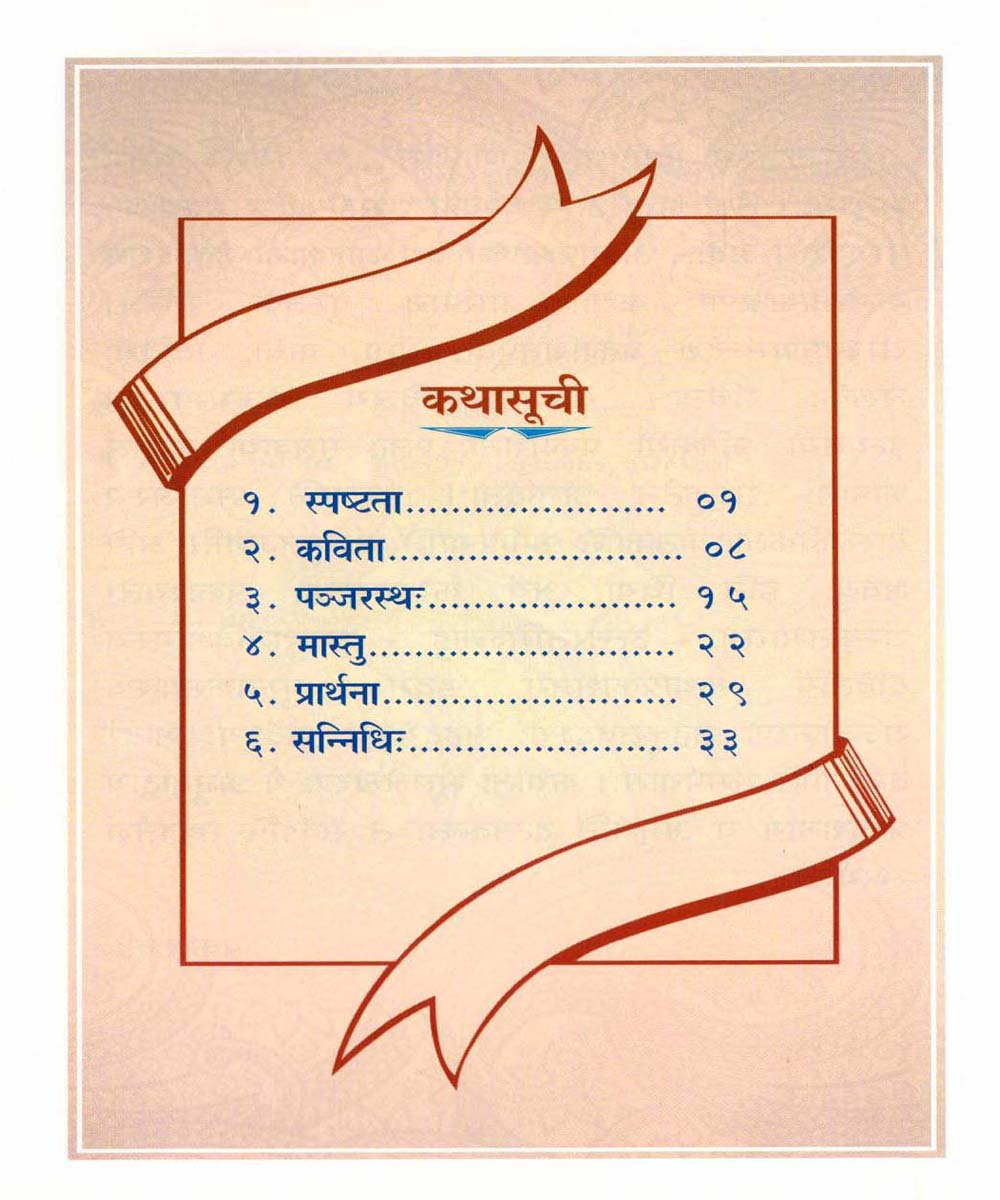 कथासूची
१. स्पष्टता........................ ०१
२. कविता........................... ०८
३. पञ्जरस्थः...................... १५
४. मास्तु........................... २२
५. प्रार्थना.......................... २९
६. सन्निधिः........................ ३३